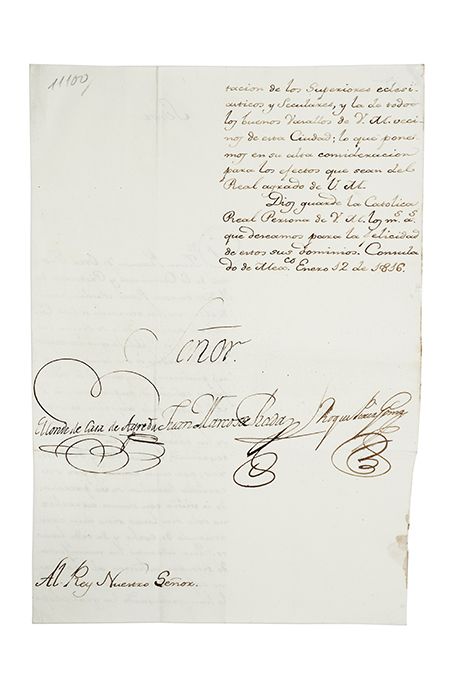 11100
tacion de los Superiores eclesi
asticos y Seculares, y la de todos
los buenos Vasallos de V. M. veci
nos de esta Ciudad; lo que pone
mos en su alta consideracion
para los efectos que sean del
Real agrado de V. M.
Dios guarde la Catolica
Real Persona de V. M. los m.s a.s
que deseamos para la felicidad
de estos sus dominios. Consula
do de Mex.co Enero 12 de 1816.
Señor.
El Conde de Casa de Agreda Juan Marcos Rada Roque
Al Rey Nuestro Señor.